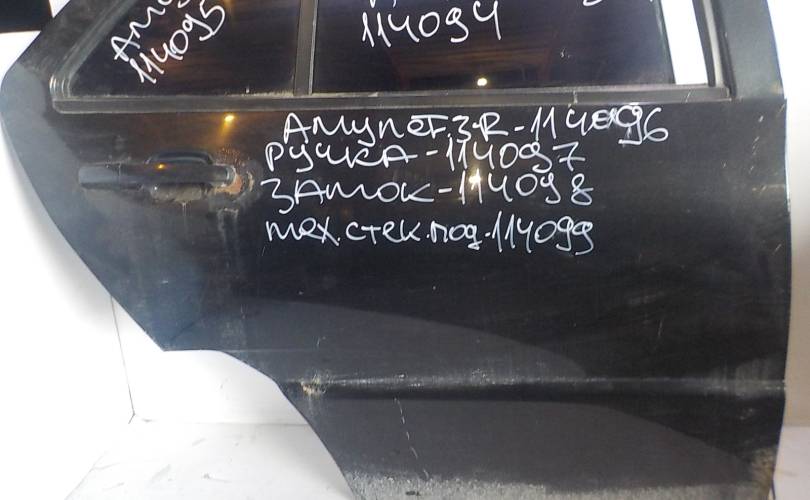 114095
114094
АМУЛЕТ.З-R-114096
РУЧКА-114097
ЗАМОК-114098
мех.стек.под.-114099